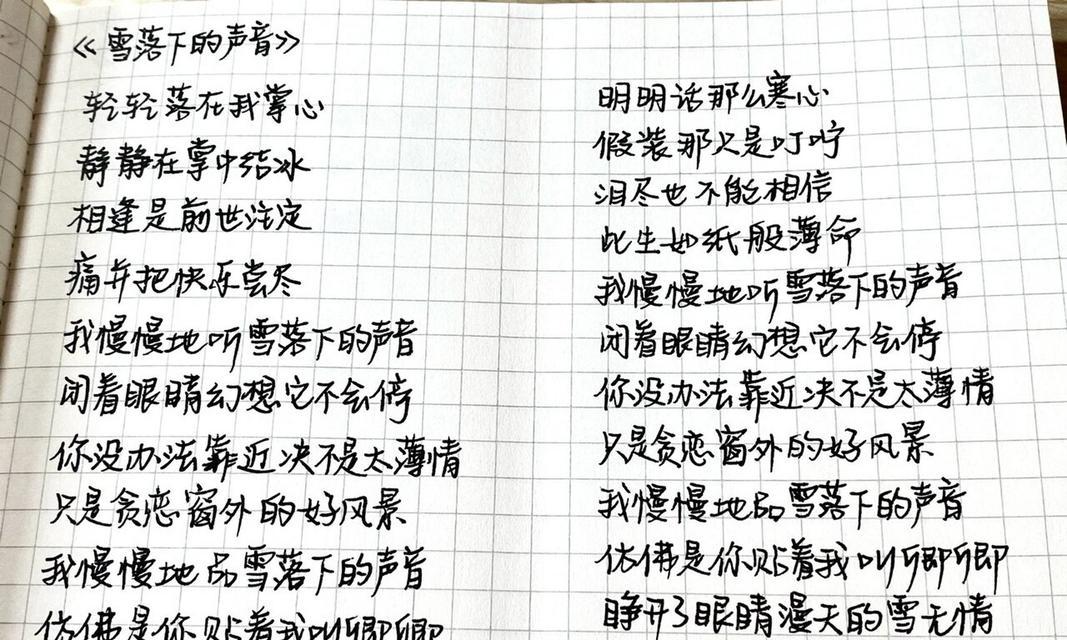 《雪落下的声音》
轻轻落在我掌心
静静在掌中结冰
相逢是前世注定
痛并把快乐尝尽
我慢慢地听雪落下的声音
闭着眼睛幻想它不会停
你没办法靠近决不是太薄情
只是贪恋窗外的好风景
我慢慢地品雪落下的声音
仿佛是你贴着我叫卿卿
明明话那么寒心
假装那只是叮咛
泪尽也不能相信
此生如纸般薄命
我慢慢地听雪落下的声音
闭着眼睛幻想它不会停
你没办法靠近决不是太薄情
只是贪恋窗外的好风景
我慢慢地品雪落下的声音
仿佛是你贴着我叫卿卿
睁开了眼睛漫天的雪无情